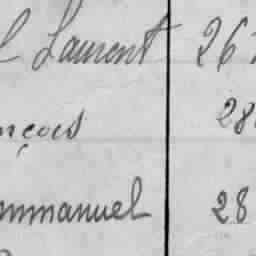 Laurent 26
nçois 28
mmanuel 28